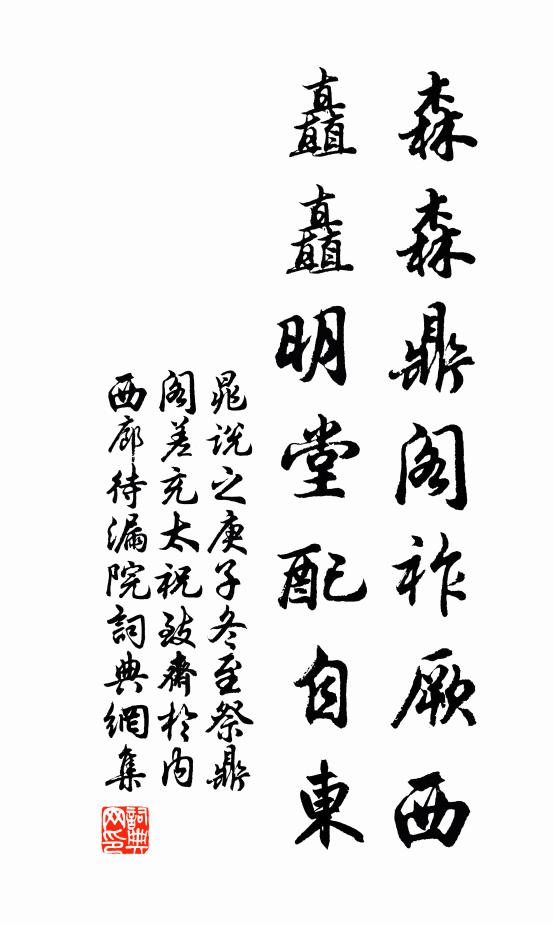 森森鼎阁祚厥西
矗矗明堂配自東
晁说之庚子冬至祭鼎
阁差充太祝致齋於内
西廊待漏院詞典網集
詞典网印